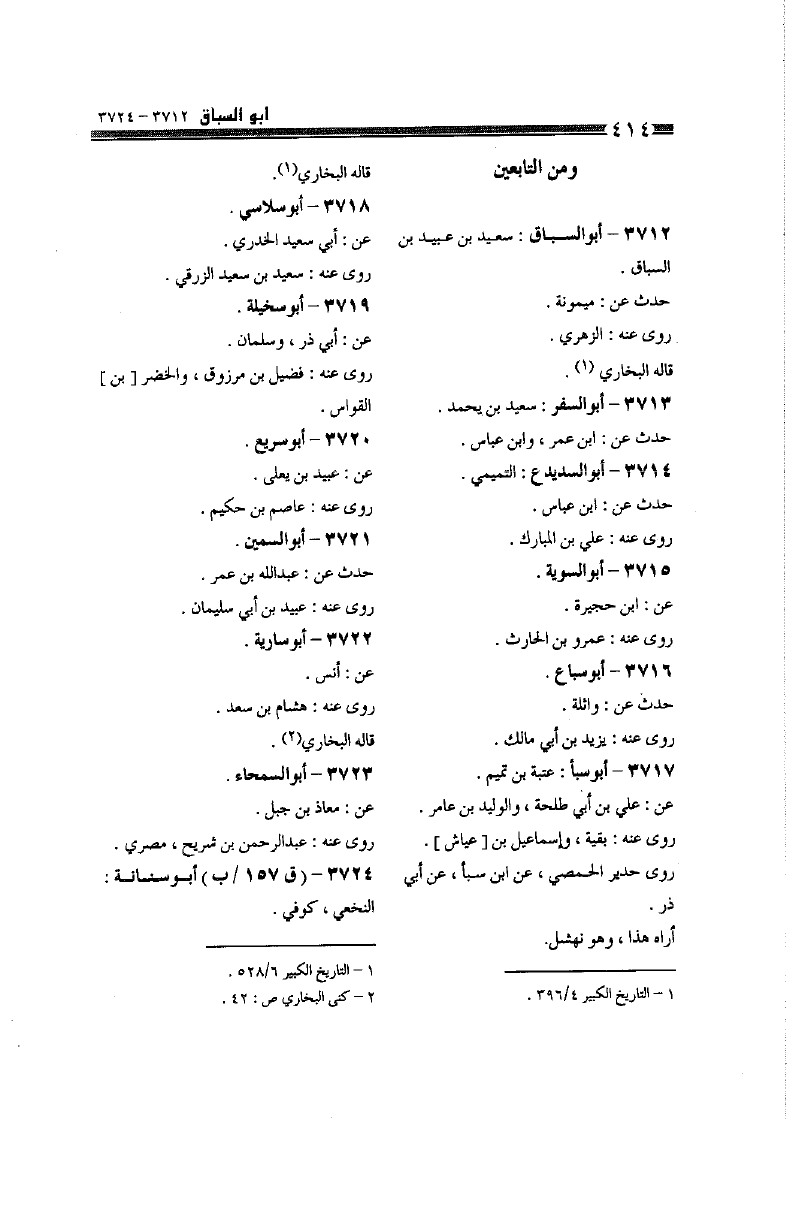 ابو السباق ٣٧١٢ – ٣٧٢٤
٤١٤
ومن التابعين
٣٧١٢ – أبوالسباق : سعيد بن عبيد بن
السباق .
حدث عن : ميمونة .
روى عنه : الزهري .
قاله البخاري (١) .
٣٧١٣ – أبوالسفر : سعيد بن يحمد .
حدث عن : ابن عمر ، وابن عباس .
٣٧١٤ – أبوالسديدع : التميمي .
حدث عن : ابن عباس .
روى عنه : علي بن المبارك .
٣٧١٥ – أبوالسوية .
عن : ابن حجيرة .
روى عنه : عمرو بن الحارث .
٣٧١٦ – أبوسباع .
حدث عن : واثلة .
روى عنه : يزيد بن أبي مالك .
٣٧١٧ – أبوسبأ : عتبة بن تميم .
عن : علي بن أبي طلحة ، والوليد بن عامر .
روى عنه : بقية ، وإسماعيل بن [ عياش ] .
روى حدير الحمصي ، عن ابن سبأ ، عن أبي
ذر .
أراه هذا ، وهو نهشل.
١ – التاريخ الكبير ٣٩٦/٤ .
قاله البخاري(١).
٣٧١٨ – أبوسلاسي .
عن : أبي سعيد الخدري .
روى عنه : سعيد بن سعيد الزرقي .
٣٧١٩ – أبوسخيلة .
عن : أبي ذر ، وسلمان .
روى عنه : فضيل بن مرزوق ، والخضر [ بن ]
القواس .
٣٧٢٠ – أبوسريع .
عن : عبيد بن يعلى .
روى عنه : عاصم بن حكيم .
٣٧٢١ – أبوالسمين .
حدث عن : عبدالله بن عمر .
روى عنه : عبيد بن أبي سليمان .
٣٧٢٢ – أبوسارية .
عن : أنس .
روى عنه : هشام بن سعد .
قاله البخاري(٢) .
٣٧٢٣ – أبوالسمحاء .
عن : معاذ بن جبل .
روى عنه : عبدالرحمن بن شريح ، مصري .
٣٧٢٤ – ( ق ١٥٧ / ب ) أبوسنانة :
النخعي ، كوفي .
١ – التاريخ الكبير ٥٢٨/٦ .
٢ – كنى البخاري ص : ٤٢ .